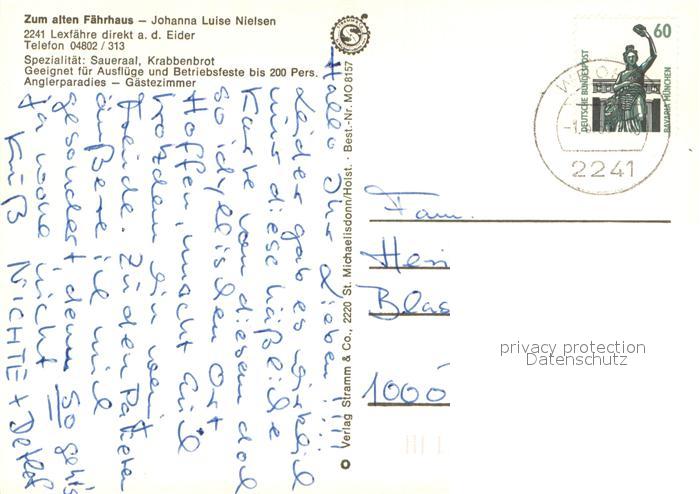 Zum alten Fährhaus – Johanna Luise Nielsen
2241 Lexfähre direkt a. d. Eider
Telefon 04802 / 313
Spezialität: Saueraal, Krabbenbrot
Geeignet für Ausflüge und Betriebsfeste bis 200 Pers.
Anglerparadies – Gästezimmer
Hallo Ihr Lieben!!!!
Leider gab es wirklich
nur diese häßliche
Karte von diesem doch
so idyllischen Ort
Hoffen, macht Euch
trotzdem 'ne
Freude. Zu den
äußere ich mich
gesondert, denn so geht's
ja wohl nicht
Kuß NICHTE + Detlef
Verlag Stramm & Co., 2220 St. Michaelisdonn/Holst. · Best.-Nr. MO 8157
60
DEUTSCHE BUNDESPOST
BAVARIA MÜNCHEN
2241
Fam.
Hein
Blas
1000
privacy protection
Datenschutz